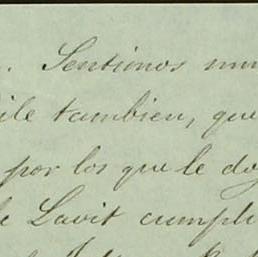 . Sentimos mu
ile tambien, que
por los que le do
e Lavit cumpl